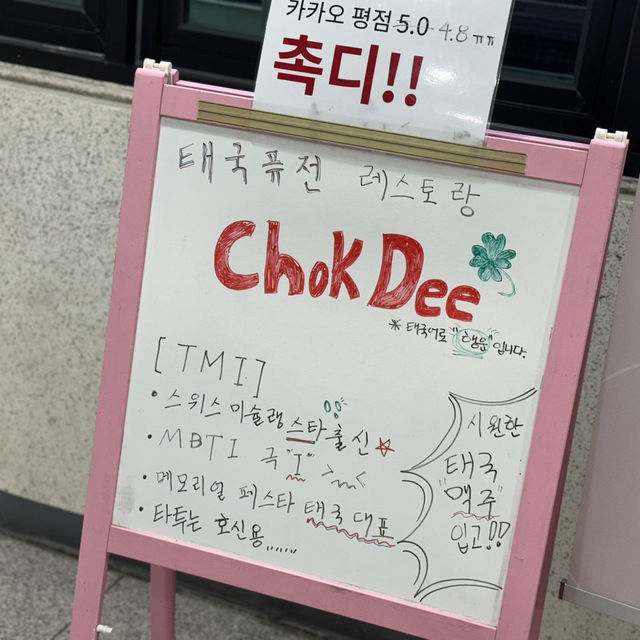 카카오 평점 5.0 4.8 ㅠㅠ
촉디!!
태국퓨전 레스토랑
Chok Dee
※ 태국어로 "행운" 입니다.
[TMI]
• 스위스 미슐랭 스타 출신
• MBTI 극 "I" >﹏<
• 메모리얼 페스타 태국 대표
• 타투는 호신용......
시원한
태국
"맥주"
입고!!